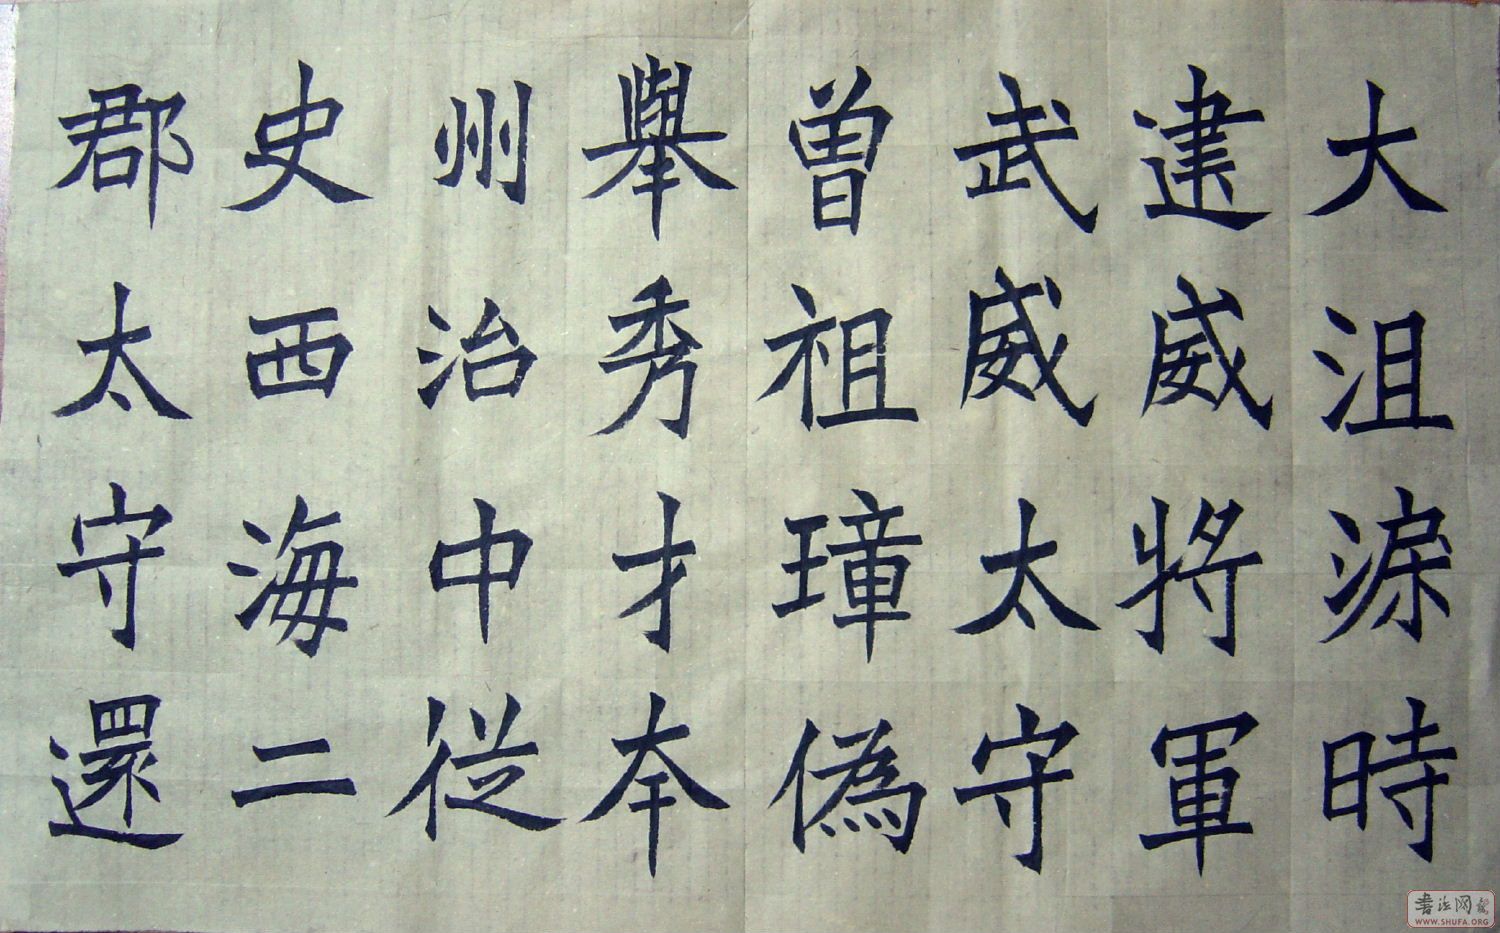 大沮渠時
建威將軍
武威太守
曾祖璋偽
舉秀才本
州治中從
史西海二
郡太守還
書法网
WWW.SHUFA.ORG